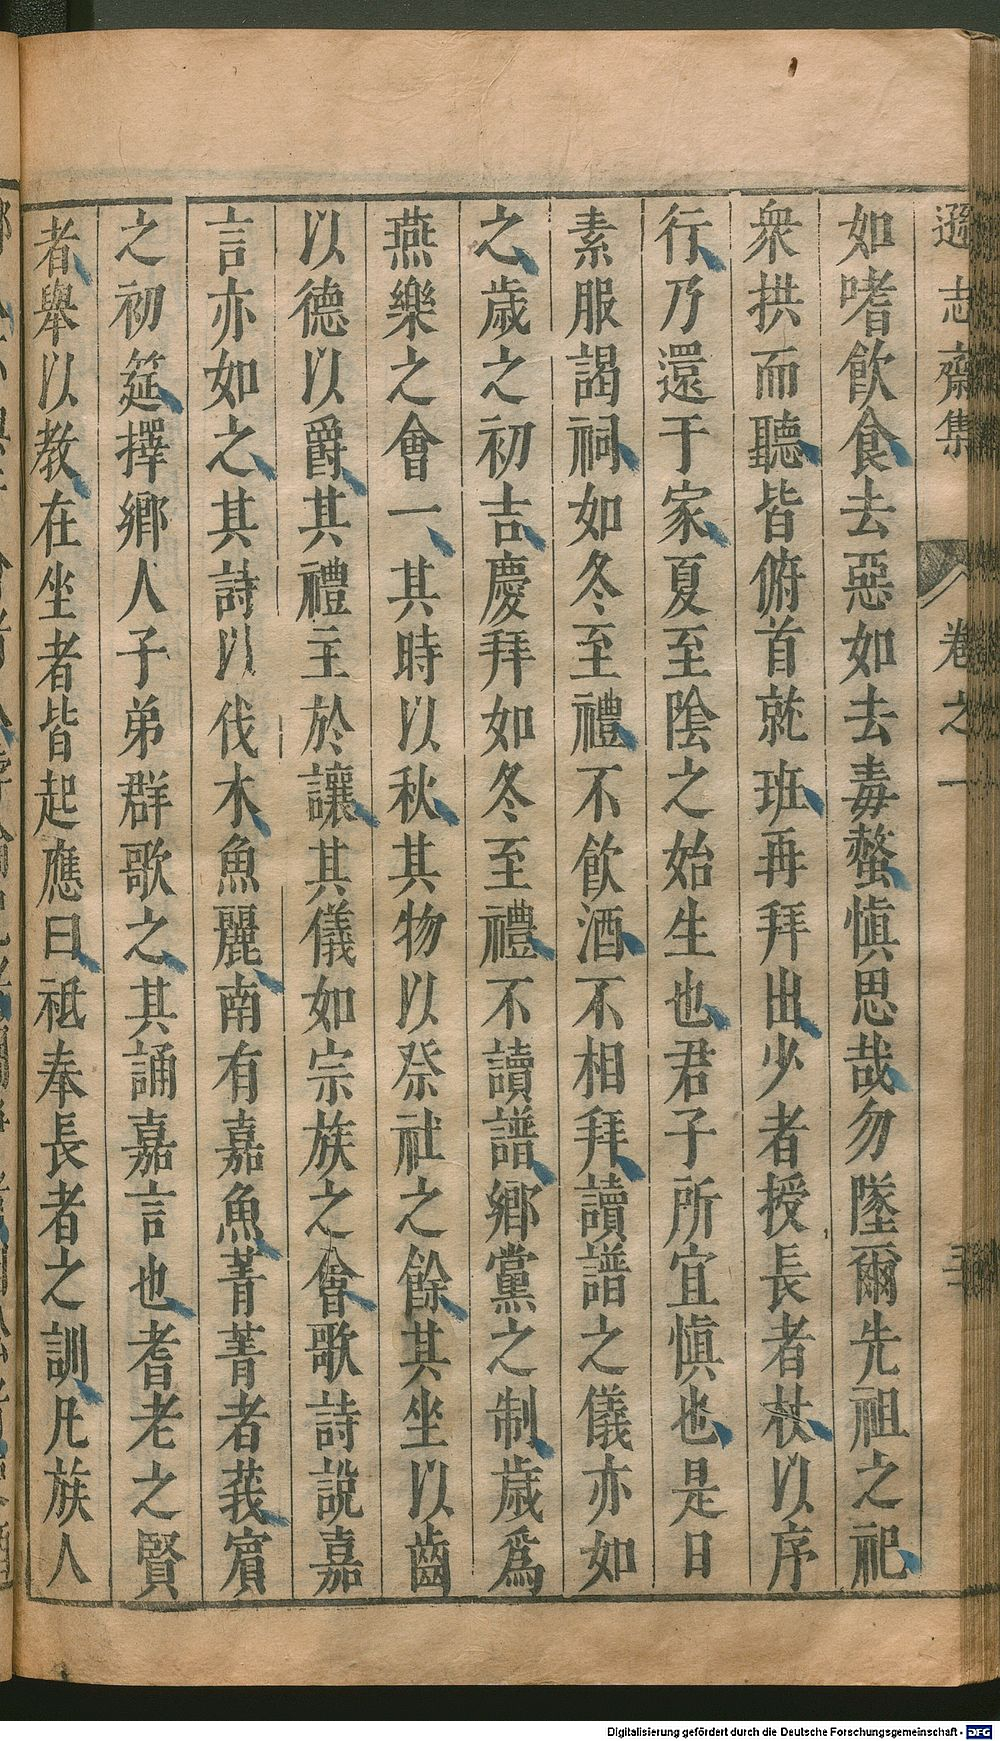 遜志齋集 卷之一
如嗜飲食去惡如去毒螫愼思哉勿墜爾先祖之祀
衆拱而聽皆俯首就班再拜出少者授長者杖以序
行乃還于家夏至陰之始生也君子所宜愼也是日
素服謁祠如冬至禮不飲酒不相拜讀譜之儀亦如
之歲之初吉慶拜如冬至禮不讀譜鄉黨之制歲爲
燕樂之會一其時以秋其物以祭社之餘其坐以齒
以德以爵其禮主於讓其儀如宗族之會歌詩說嘉
言亦如之其詩以伐木魚麗南有嘉魚菁菁者莪賓
之初筵擇鄉人子弟群歌之其誦嘉言也耆老之賢
者舉以教在坐者皆起應曰祗奉長者之訓凡族人
Digitalisierung gefördert durch die Deutsche Forschungsgemeinschaft - DFG